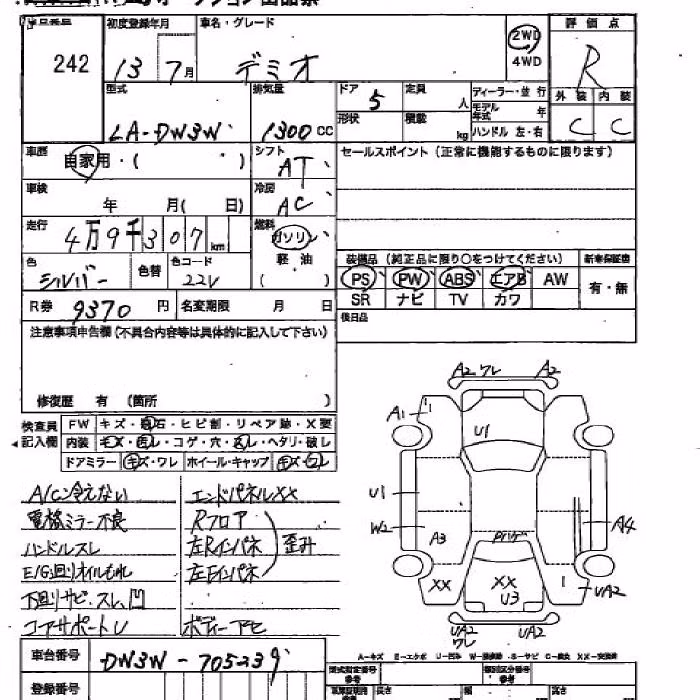 242
初度登録年月
車名・グレード
13 7月
デミオ
2WD
4WD
評価点
R
外装 内装
C C
型式
LA-DW3W
排気量
1300 CC
ドア 5
定員 人
ディーラー・並行
モデル年式 年
形状
積載 kg
ハンドル 左・右
車歴
自家用・( )
シフト
AT
セールスポイント(正常に機能するものに限ります)
車検
年 月( 日)
冷房
AC
走行
4万9千307 km
燃料
ガソリン
軽・油
( )
色
シルバー
色替
色コード
22V
装備品(純正品に限り○をつけてください)
新車保証書
PS PW ABS エアB AW
有・無
SR ナビ TV カワ
R券 9370 円
名変期限 月 日
後日品
注意事項申告欄(不具合内容等は具体的に記入して下さい)
修復歴 有 (箇所 )
検査員
記入欄
FW キズ・飛石・ヒビ割・リペア跡・X要
内装 キズ・汚レ・コゲ・穴・スレ・ヘタリ・破レ
ドアミラー キズ・ワレ ホイール・キャップ キズ・ワレ
A/C冷えない
電格ミラー不良
ハンドルスレ
E/G廻りオイルもれ
下廻りサビ・スレ、凹
コアサポートU
エンドパネルXX
Rフロア
左Rインパネ
左Fインパネ
歪み
ボディーアセ
A2 ワレ A2
A1
U1
U1
W2
A3
A4
XX
XX
U3
UA2
UA2
ワレ
UA2
A-キズ E-エクボ U-凹み
車台番号 DW3W-705239
登録番号
型式指定番号
類別区分番号
長さ
幅
高さ